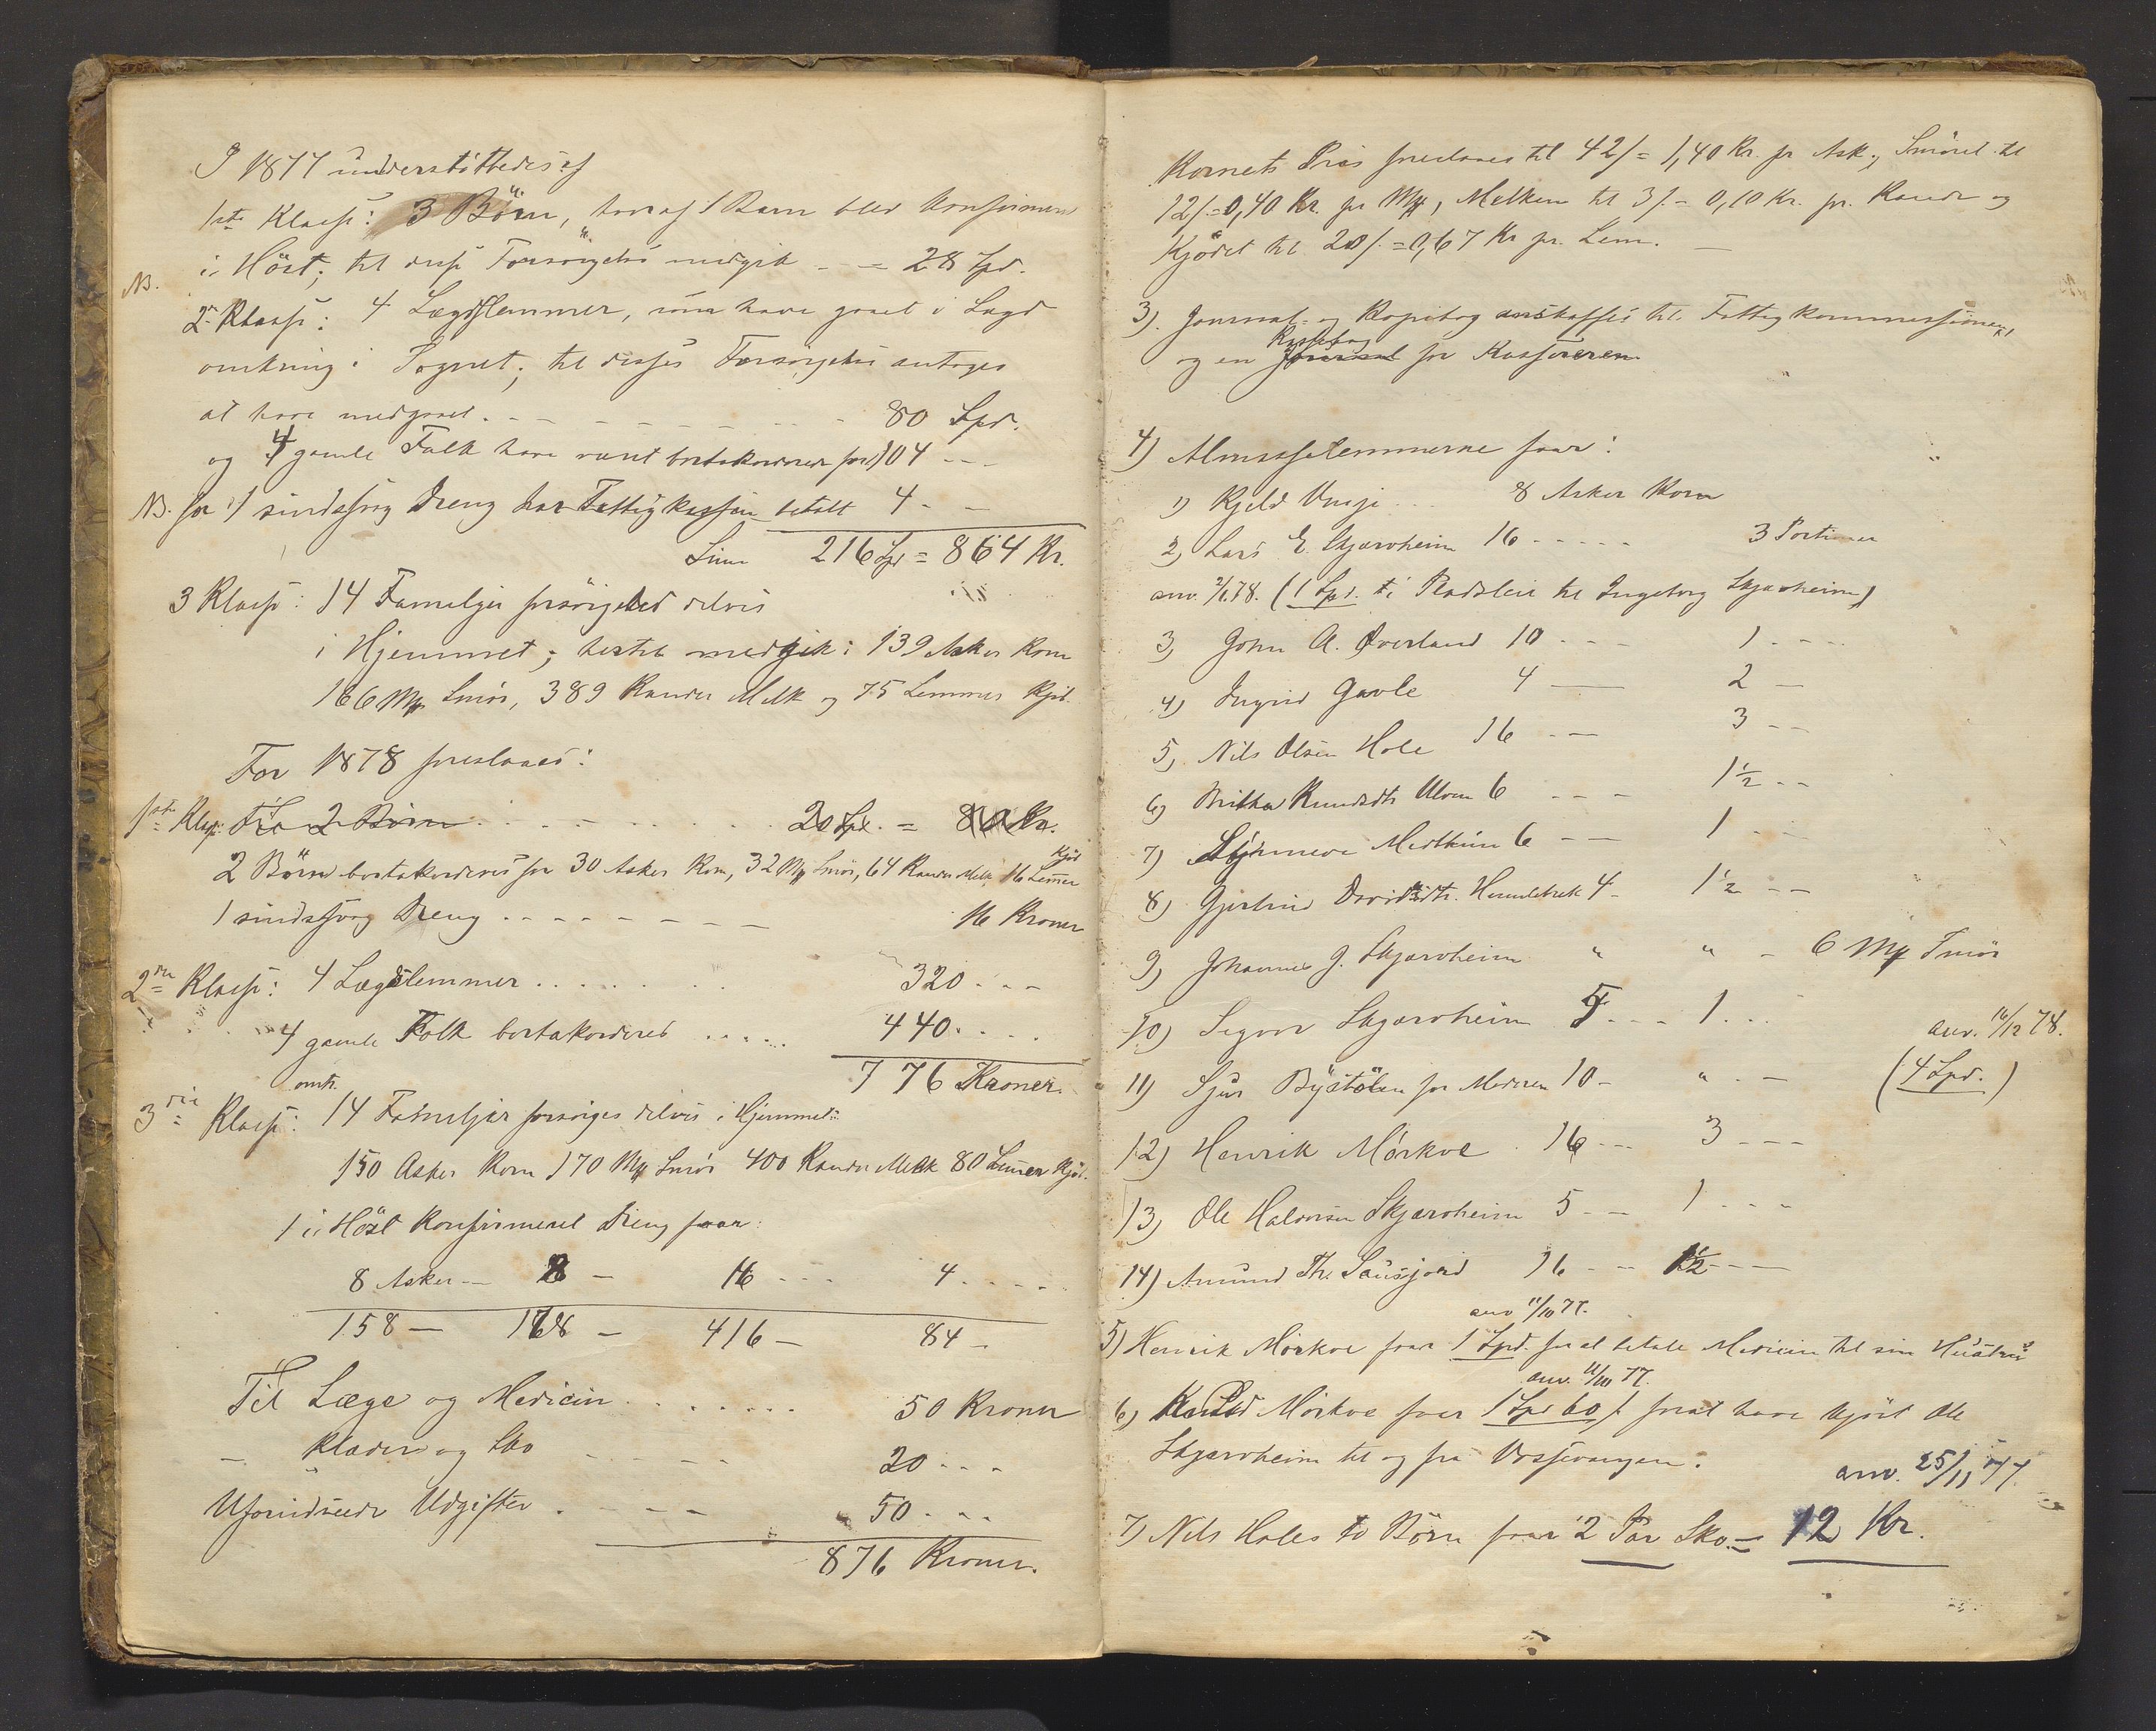 I 1877 understöttedes af
1ste Klasse: 3 Börn, hvoraf 1 Barn blev konfirmeret
i Höst; til disses Forsörgelse medgik - - = 28 Spd.
NB.
2den Klasse: 4 Lægdslemmer, som have gaaet i Lægd
omkring i Sognet; til disses Forsörgelse antages
at have medgaaet. - - - - - - - 80 Spd.
og 4 gamle Folk have været bortakkorderede for 104 - -
NB. for 1 sindssvag Dreng har Fattigkassen betalt 4 - -
Sum 216 Spd = 864 Kr.
3 Klasse: 14 Familjer forsörgedes delvis
i Hjemmet; hertil medgik: 139 Asker Korn
166 Mk Smör, 389 Kander Melk og 75 Lemmer Kjöd.
For 1878 foreslaaes:
1ste Klas: For 2 Börn . . . . . . 20 Spd. = 80 Kr.
Kjöd
2 Börn bortakorderes for 30 Asker Korn, 32 Mk Smör, 64 Kander Melk, 16 Lemmer
1 sindssvag Dreng . . - - - - - - 16 Kroner
2den Klasse: 4 Lægdslemmer . . . . . . 320 - - -
4 gamle Folk bortakorderes . . . . . 440 - . . .
776 Kroner.
omtr.
3die Klasse: 14 Familjer forsörges delvis i Hjemmet:
150 Asker Korn 170 Mk Smör 400 Kander Melk 80 Lemmer Kjöd.
1 i Höst konfirmeret Dreng faar:
8 Asker — 8 — 16 - - - 4 - - - -
158 — 178 — 416 — 84 —
Til Læge og Medicin . . . . . . . 50 Kroner
— Klæder og Sko - - - - - 20 - - -
Uforudseede Udgifter . - - - 50 - - -
876 Kroner.
Kornets Pris foreslaaes til 42 ſ = 1,40 Kr. pr Ask; Smöret til
12 ſ = 0,40 Kr. pr Mk, Melken til 3 ſ = 0,10 Kr. pr. Kande og
Kjödet til 20 ſ. = 0,67 Kr pr. Lem. —
3). Journal- og Kopibog anskaffes til Fattigkommissionen,
Kassebog
og en Journal for Kassereren
4) Almisselemmerne faar:
1) Kjeld Vinje . . . 8 Asker Korn
2) Lars E. Skjerveheim 16 - - - - - 3 Portioner
anv. 2/1 78. (1 Spd. i Pladsleie til Ingeborg Skjerveheim)
3) John A. Överland 10 - - - 1 - - - -
4) Ingrid Gavle 4 — 2 —
5) Nils Olsen Hole 16 - — 3 - -
6) Britha Knudsdtr Ulven 6 - - - 1½ - -
7) Synneva Medthun 6 - — 1 - -
8) Gjertrud Davidsdtr. Hemletræk 4 - 1½ - -
9) Johannes J. Skjerveheim " " - 6 Mk Smör
10) Sygver Skjerveheim 5 - - - 1 . . .
anv. 16/12 78.
11) Sjur Bystölen for Moderen 10 - " - — (4 Spd.)
12) Henrik Mörkve . 16 - — 3 - - -
13) Ole Halvorsen Skjerveheim 5 - — 1 - - -
14) Amund Th. Sausjord 16 - — 1½ - - -
anv 11/10 77.
5) Henrik Mörkve faar 1 Spd. for at betale Medicin til sin Hustru
anv. 11/10 77.
6) Knud Mörkve faar 1 Spd 60 ſ for at have kjört Ole
Skjerveheim til og fra Vossevangen.
anv. 25/11 77.
7) Nils Holes to Börn faar 2 Par Sko. = 12 Kr.